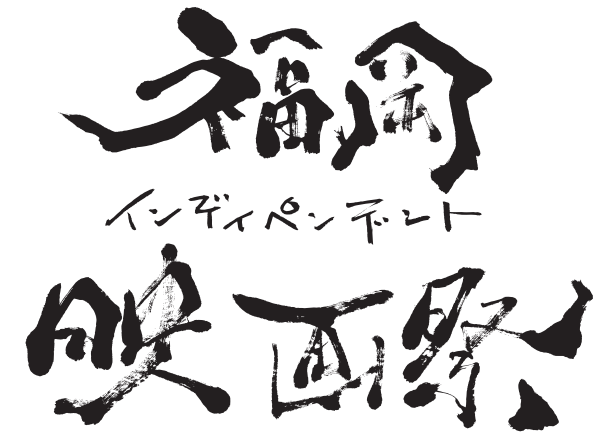 福岡
インディペンデント
映画祭